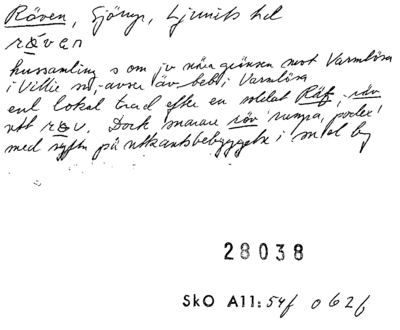 Räven, Sjörup, Ljunits hd
rävan
hussamling s om jv nära gränsen mot Varmlösa
i Villie sn, avser äv beb i Varmlösa
enl lokal trad efter en soldat Räf, räv
utt räv. Dock snarare röv 'rumpa, podex'
med syftn på utkantsbebyggelse i
28038
SkO A11:54f o 62f